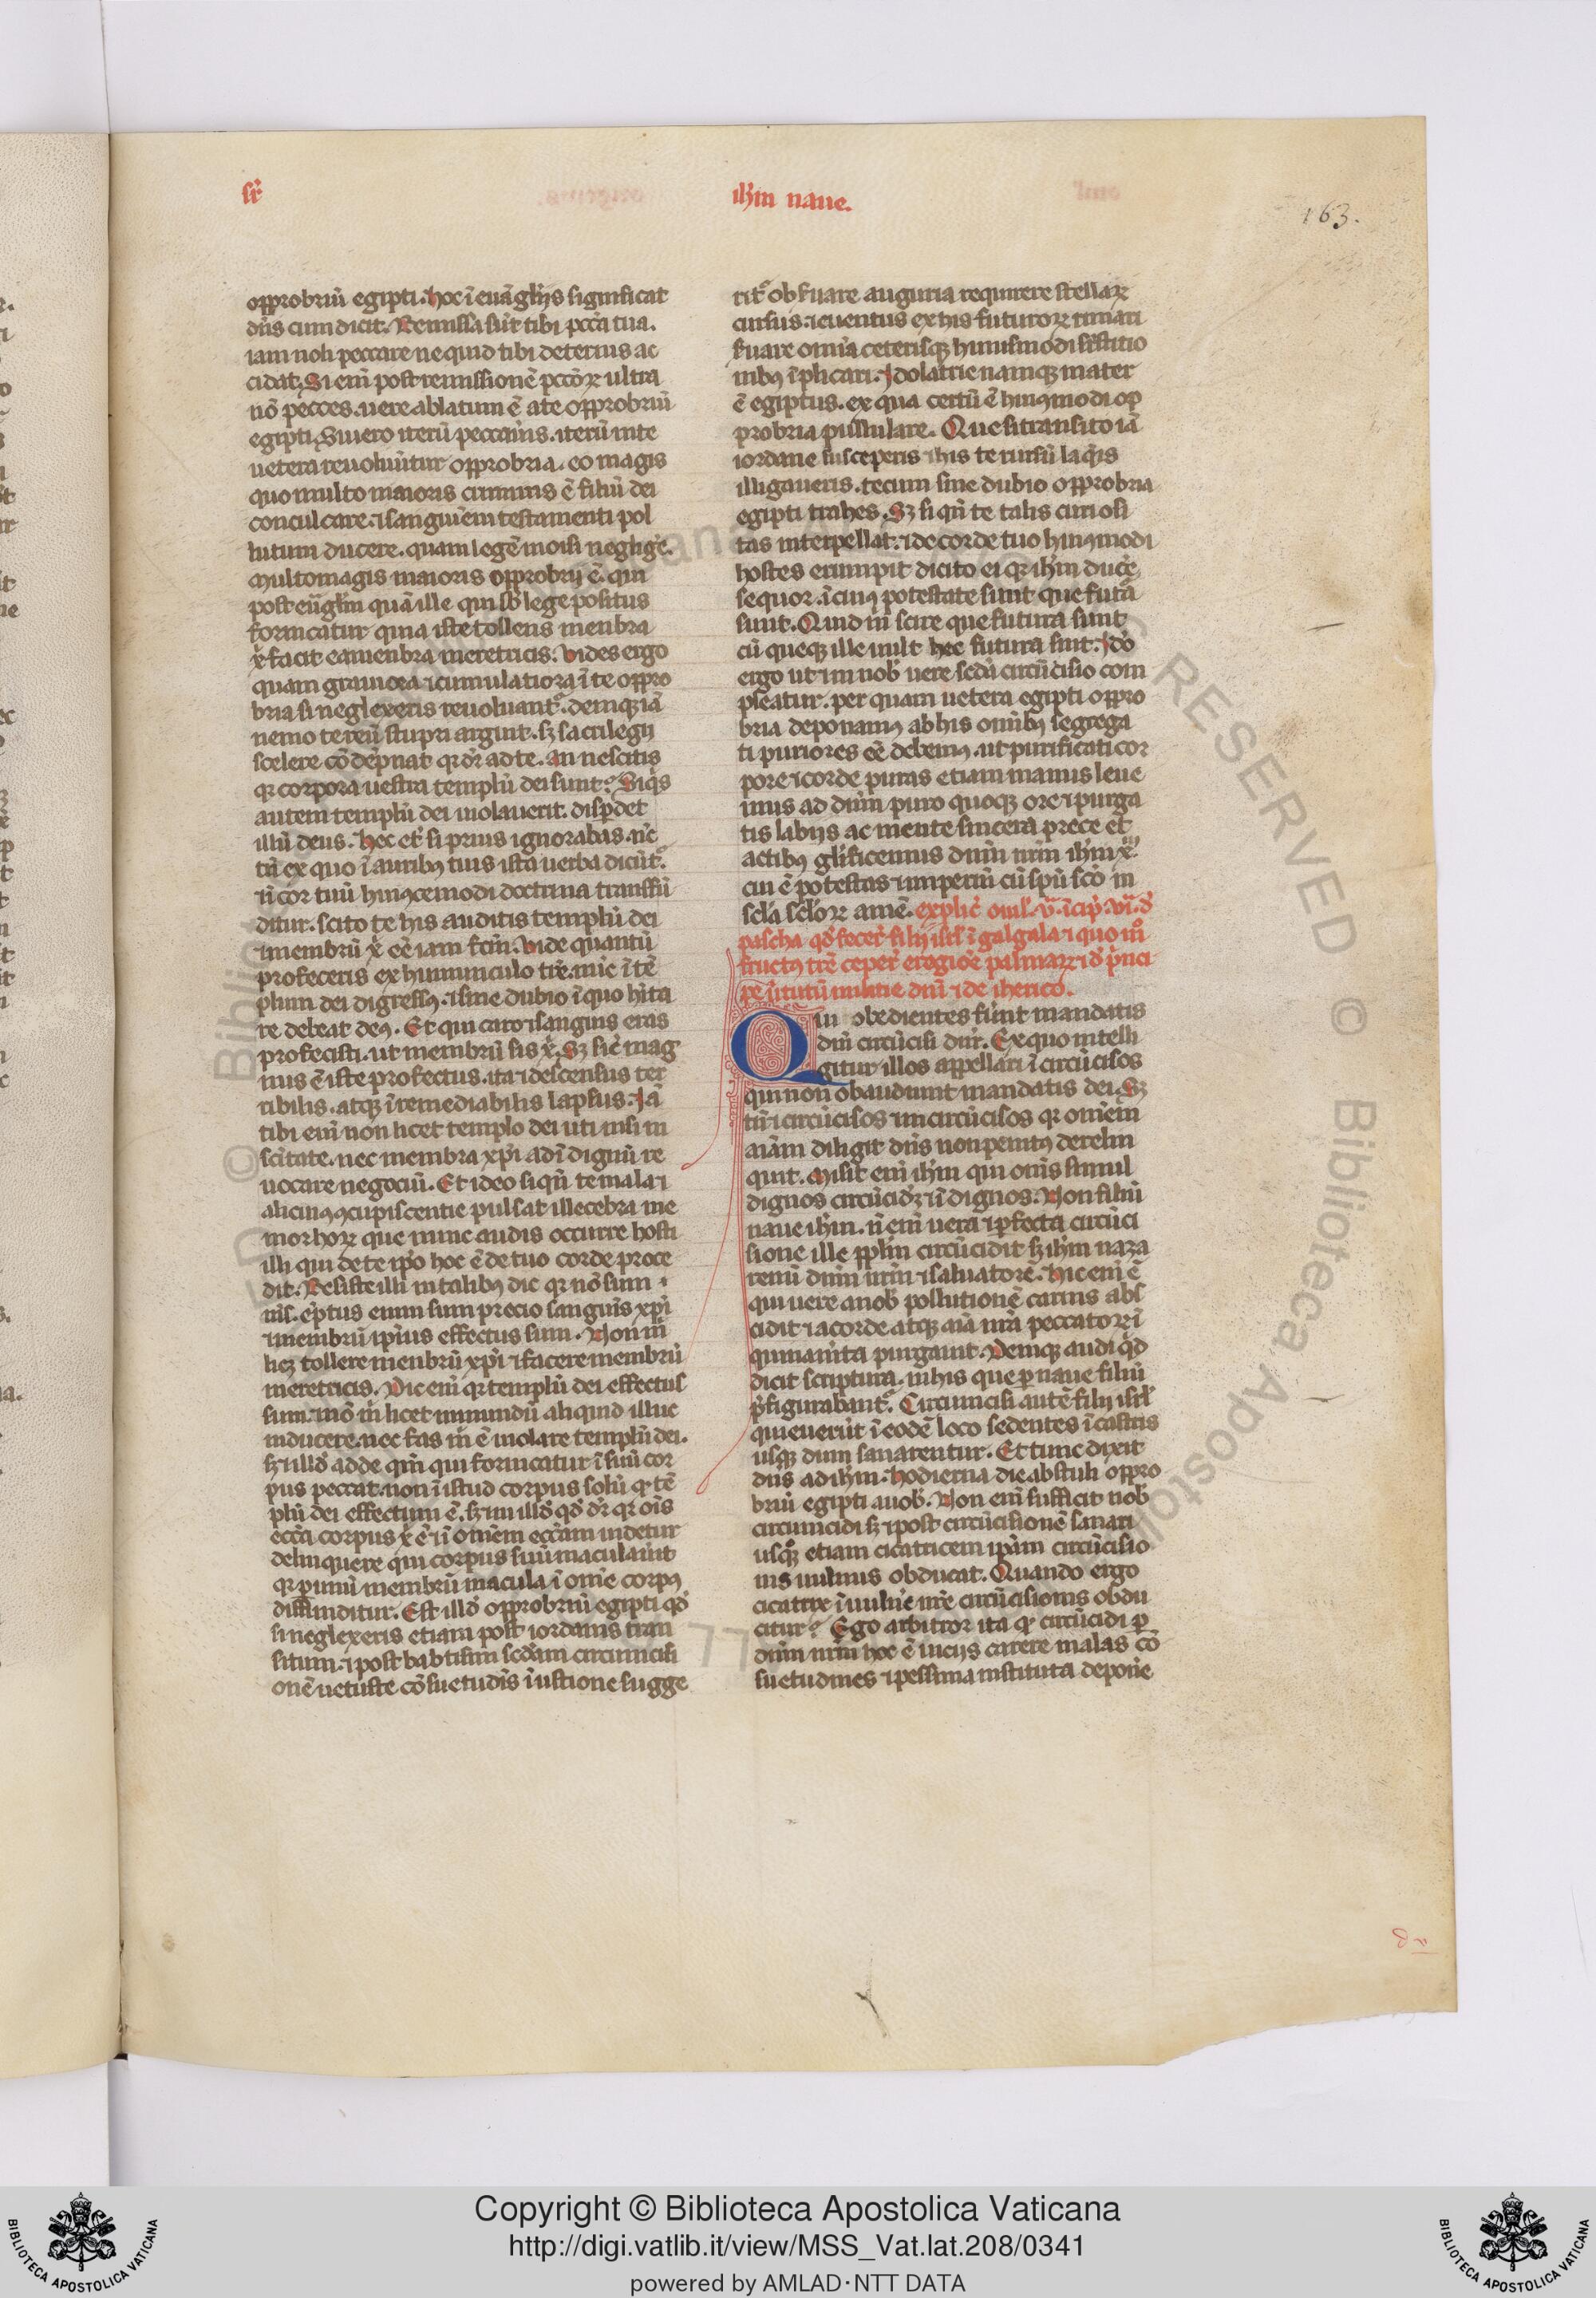 sr̄
ih̄m naue.
163.
opprobriū egipti. hoc ī euāglijs significat
dn̄s cum dicit. Remissa sūt tibi pccā tua.
iam noli peccare ne quid tibi deterius ac
cidat. Si em̄ post remissionē pccōꝝ ultra
nō pecces. uere ablatum ē a te opprobriū
egipti. Si uero iterū peccauīs. iterū in te
uetera reuoluūtur opprobria. eo magis
quo multo maioris criminis ē filiū dei
conculcare. ⁊ sanguīem testamenti pol
lutum ducere. quam legē moisi negliḡe.
Multo magis maioris opprobrij ē. qui
post euḡlm quā ille qui sb̄ lege positus
fornicatur quia iste tollens menbra
x̄ facit ea menbra meretricis. Vides ergo
quam grauiora ⁊ cumulatiora ī te oppro
bria si neglexeris reuoluant᷑. deniqꝫ iā
nemo te reū stupri arguit. sꝫ sacrilegij
scelere cōdēpnat qr dr̄ ad te. An nescitis
qr corpora uestra templū dei sunt? Si qͥs
autem templū dei uiolauerit. disꝑdet
illū deus. Hec et̄ si prius ignorabas. nc̄
tn̄ ex quo ī auribꝰ tuis ista uerba dicūt᷑.
⁊ ī cor tuū huiꝰcemodi doctrina transfū
ditur. scito te his auditis templū dei
⁊ membrū x̄ eē iam fcm̄. Vide quantū
profeceris ex humunculo tr̄e. nūc ī tē
plum dei digressꝰ. ⁊ sine dubio ī quo hīta
re debeat deꝰ. Et qui caro ⁊ sanguis eras
profecisti. ut membrū sis x̄. Sꝫ sic̄ mag
nus ē iste profectus. ita ⁊ descensus ter
ribilis. atqꝫ īremediabilis lapsus. Iā
tibi em̄ non licet templo dei uti nisi in
scītate. nec membra xp̄i ad īdignū re
uocare negociū. Et ideo si qn̄ te mala ⁊
alicuiꝰ ꝯcupiscentie pulsat illecebra me
mor horꝝ que nunc audis occurre hosti
illi qui de te ip̄o hoc ē de tuo corde proce
dit. Resiste illi in talibꝰ dic qr nō sum
m̄s. ēptus enim sum precio sanguīs xp̄i
⁊ membrū ip̄ius effectus sum. Non m̄
licꝫ tollere menbrū xp̄i ⁊ facere membrū
meretricis. Dic em̄ qr templū dei effectus
sum. nō m̄ licet inmundū aliquid illuc
inducere. nec fas m̄ ē uiolare templū dei.
sꝫ ⁊ illd̄ adde qm̄ qui fornicatur ī suū cor
pus peccat. non ī istud corpus solū qr tē
plū dei effectum ē. sꝫ ⁊ in illd̄ qd̄ dr̄ qr oīs
ecc̄a corpus x̄ ē. ⁊ ī omēm ecc̄am uidetur
delinquere qui corpus suū maculauit
qr ꝑ unū membrū macula ī om̄e corpꝰ
diffunditur. Est illd̄ opprobriū egipti qd̄
si neglexeris etiam post iordanis tran
situm. ⁊ post babtismi sed̄am circuncisi
onē uetuste cōsuetudīs īustione sugge
rit᷑ obs̄uare auguria requirere stellaꝝ
cursus. ⁊ euentus ex his futuroꝝ rimari
s̄uare omīa ceterisqꝫ huiusmodi sūstitio
nibꝰ īplicari. Idolatrie namqꝫ mater
ē egiptus. ex qua certū ē huiꝰmodi op
probria pullulare. Que si transito iā
iordane susceperis ⁊ his te rursū laqͥs
illigaueris. tecum sine dubio opprobria
egipti trahes. Sꝫ si qn̄ te talis curiosi
tas interpellat. ⁊ de corde tuo huiꝰmodi
hostes erumpit dicito ei qr ih̄m ducē
sequor. ī cuiꝰ potestate sunt que futā
sunt. Quid m̄ scire que futura sunt
cū queqꝫ ille uult hec futura sint. Idō
ergo ut in nob̄ uere sed̄a circūcisio com
pleatur. per quam uetera egipti oppro
bria deponamꝰ ab his omībꝰ segrega
ti puriores eē debemꝰ. ut purificati cor
pore ⁊ corde puras etiam manus leue
mus ad dn̄m puro quoqꝫ ore ⁊ purga
tis labijs ac mente sincera prece et
actibꝰ glīficemus dn̄m nr̄m ih̄m x̄.
cui ē potestas ⁊ imperiū cū sp̄u scō in
scl̄a scl̄oꝝ amē. explic̄ oml̄. v̄. īcip̄. vī. d̄
pascha qd̄ fecer̄ filij isrl̄ ī galgala ⁊ quo m̊
fructꝰ tr̄e ceper̄ e regiōe palmaꝝ ⁊ d̄ pͥnci
pe v̄tutū militie dn̄i ⁊ de iherico.
Qui obedientes sunt mandatis
dn̄i circūcisi dn̄r. Ex quo intelli
gitur illos appellari īcircūcisos
qui non obaudiunt mandatis dei. Sꝫ
tn̄ ⁊ circūcisos ⁊ incircūcisos qr omēm
aīam diligit dn̄s non penitꝰ derelin
quit. Misit em̄ ih̄m qui om̄s simul
dignos circūcidꝫ ⁊ īdignos. Non filiū
naue ih̄m. n̄ em̄ uera ⁊ ꝑfecta circūci
sione ille pplm̄ circūcidit sꝫ ih̄m naza
renū dn̄m nr̄m ⁊ saluatorē. Hic em̄ ē
qui uere a nob̄ pollutionē carnis abs
cidit ⁊ a corde atqꝫ aīa nr̄a peccatoꝝ ī
quinam̄ta purgauit. Deniqꝫ audi qͥd
dicit scriptura. in his que ꝑ naue filiū
p̄figurabant᷑. Circumcisi autē filij isrl̄
quieuerūt ī eodē loco sedentes ī castris
usqꝫ dum sanarentur. Et tunc dixit
dn̄s ad ih̄m. Hodierna die abstuli oppro
briū egipti a uob̄. Non em̄ sufficit nob̄
circumcidi sꝫ ⁊ post circūcisionē sanari
usqꝫ quo etiam cicatricem ip̄am circūcisio
nis uulnus obducat. Quando ergo
cicatrix ī uuln̄e nr̄e circūcisionis obdu
citur? Ego arbitror ita qr circūcidi ꝑ
dn̄m nr̄m hoc ē uicijs carere malas cō
suetudines ⁊ pessima instituta depon̄e
Copyright © Biblioteca Apostolica Vaticana
http://digi.vatlib.it/view/MSS_Vat.lat.208/0341
powered by AMLAD·NTT DATA
BIBLIOTECA APOSTOLICA VATICANA
BIBLIOTECA APOSTOLICA VATICANA